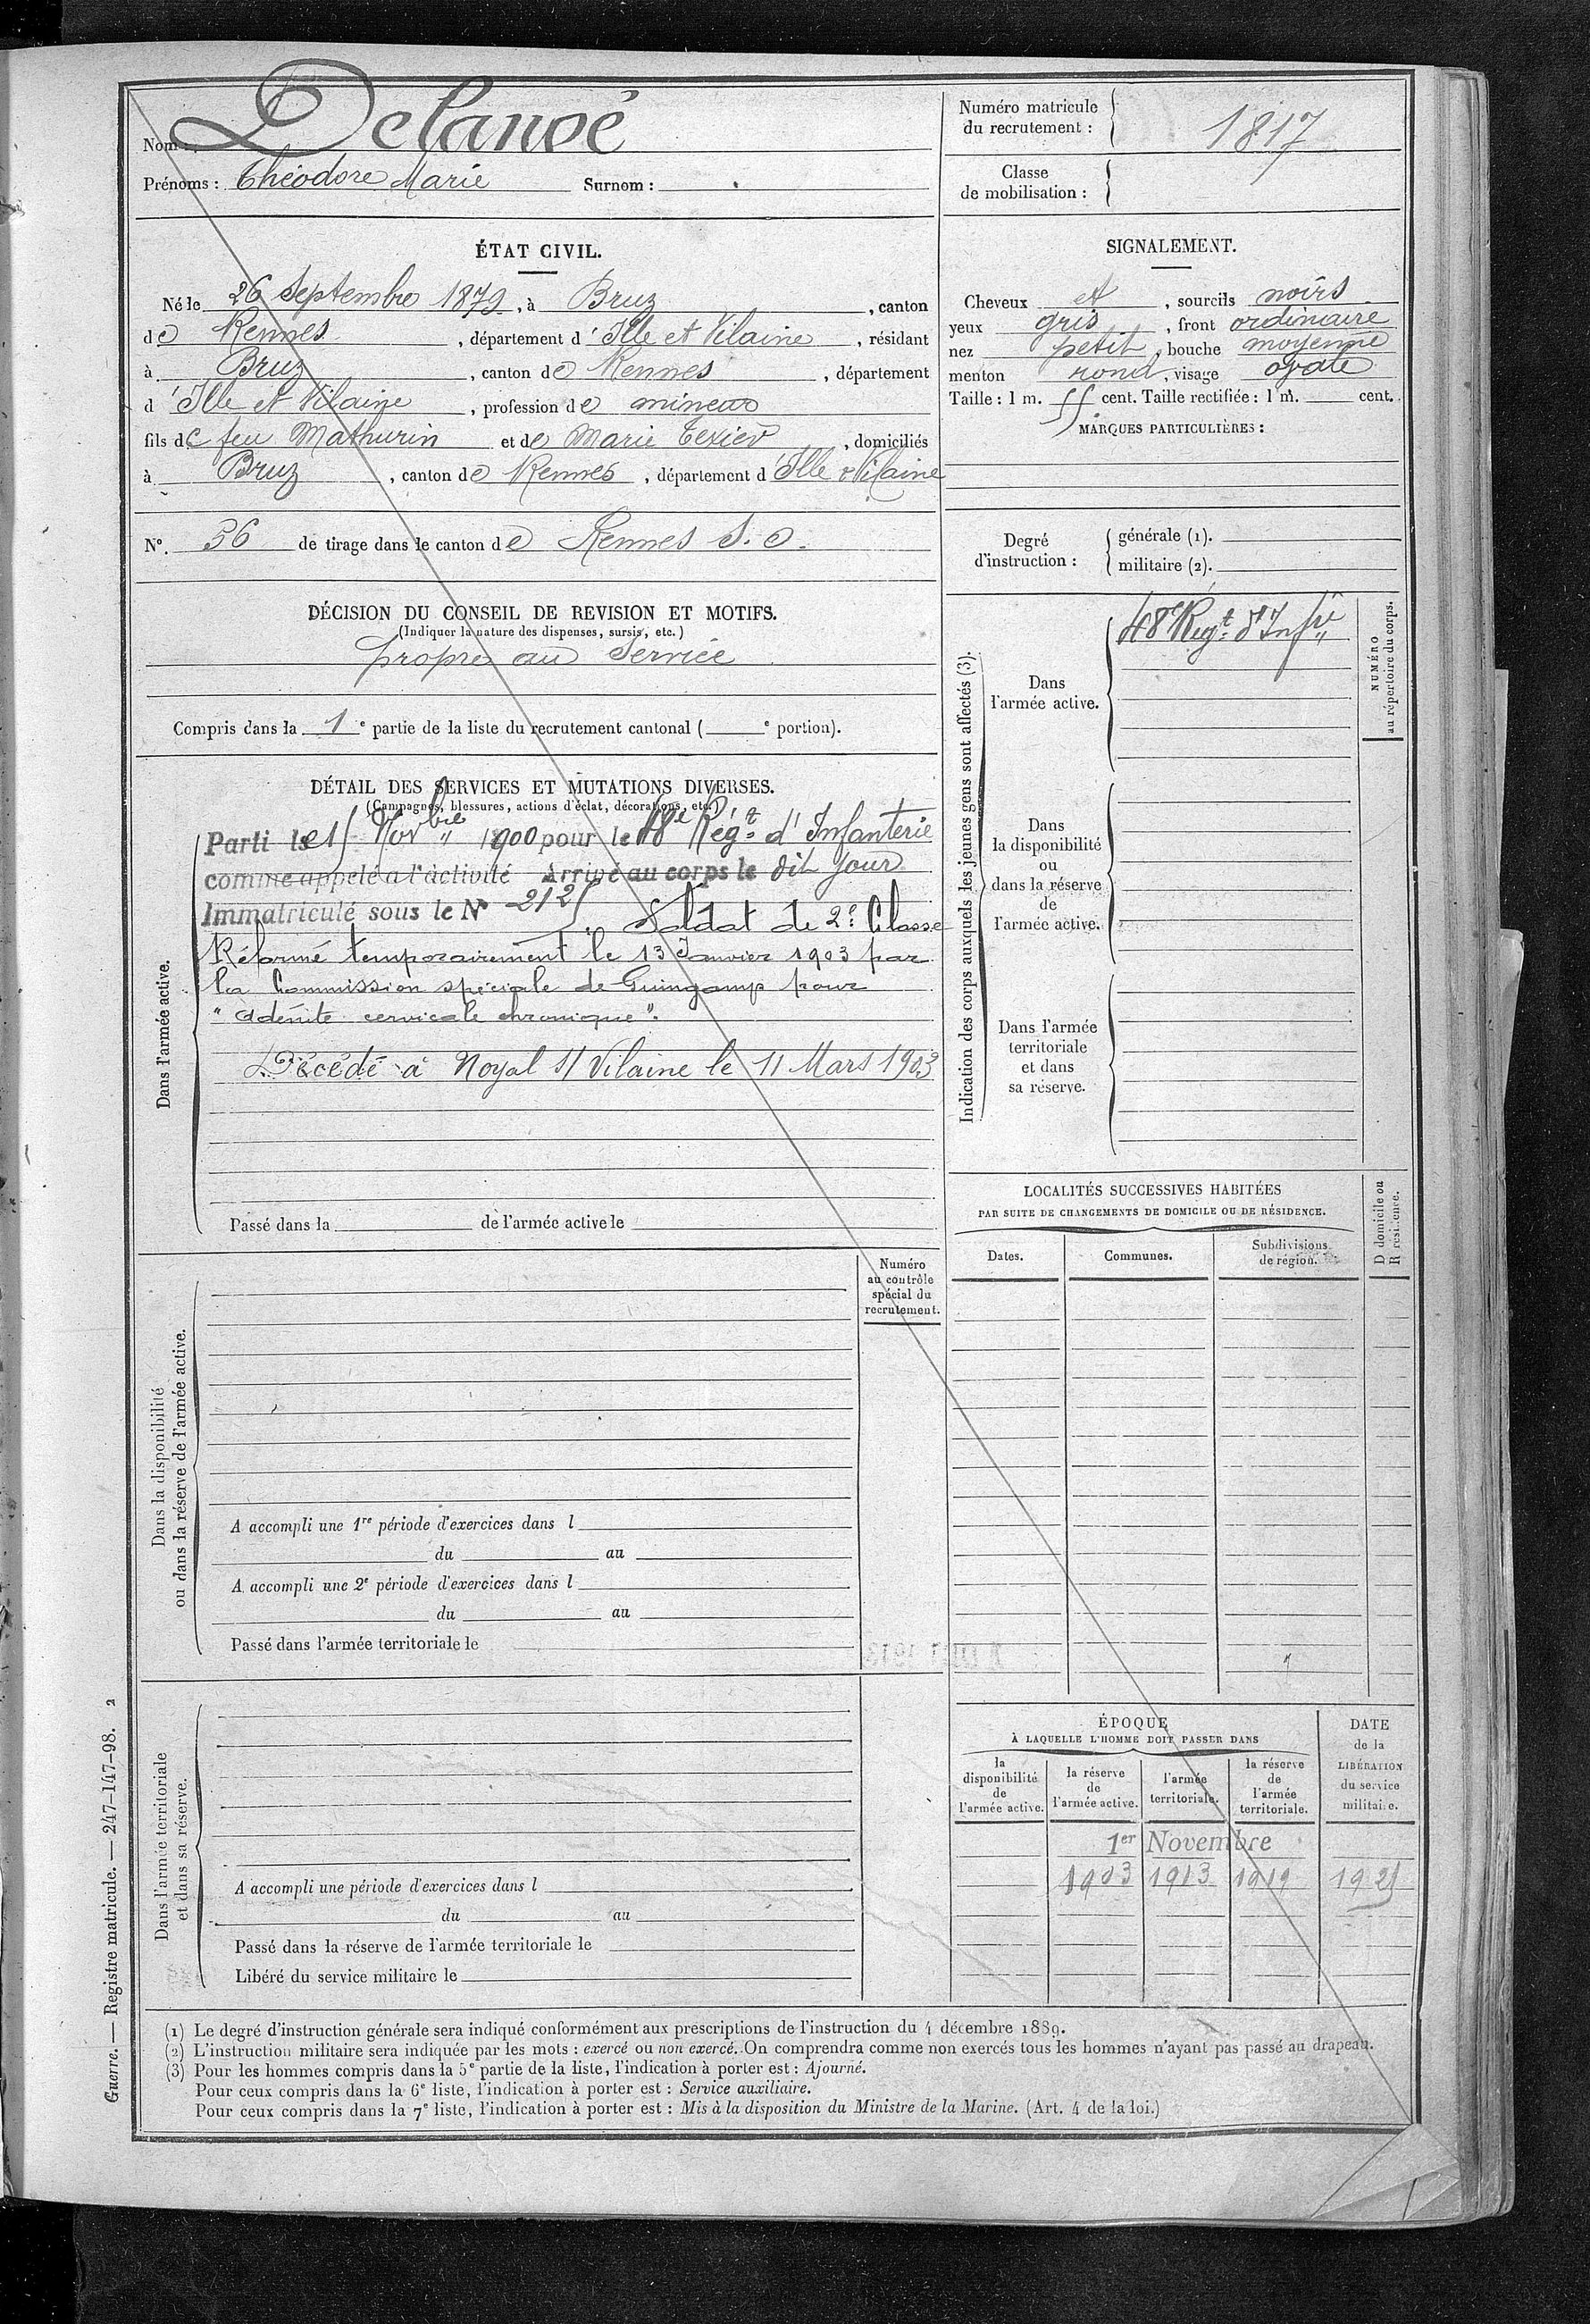 Nom : Delanoé
Prénoms : Théodore Marie Surnom :
Numéro matricule du recrutement : 1817
Classe de mobilisation :
ÉTAT CIVIL.
Né le 26 Septembre 1879, à Bruz, canton
de Rennes, département d'Ille et Vilaine, résidant
à Bruz, canton de Rennes, département
d'Ille et Vilaine, profession de mineur
fils de feu Mathurin et de Marie Texier, domiciliés
à Bruz, canton de Rennes, département d'Ille & Vilaine
N°. 36 de tirage dans le canton de Rennes S. O.
SIGNALEMENT.
Cheveux et, sourcils noirs
yeux gris, front ordinaire
nez petit, bouche moyenne
menton rond, visage ovale
Taille : 1 m. 55 cent. Taille rectifiée : 1 m. cent.
MARQUES PARTICULIÈRES :
Degré d'instruction :
générale (1).
militaire (2).
DÉCISION DU CONSEIL DE REVISION ET MOTIFS.
(Indiquer la nature des dispenses, sursis, etc.)
propre au Service
Compris dans la 1e partie de la liste du recrutement cantonal ( e portion).
DÉTAIL DES SERVICES ET MUTATIONS DIVERSES.
(Campagnes, blessures, actions d'éclat, décorations, etc.)
Dans l'armée active.
Parti le 15 Novbre 1900 pour le 48e Régt d'Infanterie
comme appelé a l'activité Arrivé au corps le dit jour
Immatriculé sous le N° 2125. Soldat de 2e Classe
Réformé temporairement le 13 Janvier 1903 par
la Commission spéciale de Guingamp pour
"adénite cervicale chronique".
Décédé à Noyal S/ Vilaine le 11 Mars 1903
Passé dans la de l'armée active le
Indication des corps auxquels les jeunes gens sont affectés (3).
NUMÉRO au répertoire du corps.
Dans l'armée active.
48e Régt. d'Infie
Dans la disponibilité ou dans la réserve de l'armée active.
Dans l'armée territoriale et dans sa réserve.
LOCALITÉS SUCCESSIVES HABITÉES
PAR SUITE DE CHANGEMENTS DE DOMICILE OU DE RÉSIDENCE.
Dates. Communes. Subdivisions de région.
D domicile ou R résidence.
Numéro au contrôle spécial du recrutement.
Dans la disponibilité ou dans la réserve de l'armée active.
A accompli une 1re période d'exercices dans l
du au
A accompli une 2e période d'exercices dans l
du au
Passé dans l'armée territoriale le
Dans l'armée territoriale et dans sa réserve.
A accompli une période d'exercices dans l
du au
Passé dans la réserve de l'armée territoriale le
Libéré du service militaire le
ÉPOQUE
À LAQUELLE L'HOMME DOIT PASSER DANS
la disponibilité de l'armée active.
la réserve de l'armée active.
l'armée territoriale.
la réserve de l'armée territoriale.
DATE de la LIBÉRATION du service militaire.
1er Novembre
1903 1913 1919 1925
(1) Le degré d'instruction générale sera indiqué conformément aux prescriptions de l'instruction du 4 décembre 1889.
(2) L'instruction militaire sera indiquée par les mots : exercé ou non exercé. On comprendra comme non exercés tous les hommes n'ayant pas passé au drapeau.
(3) Pour les hommes compris dans la 5e partie de la liste, l'indication à porter est : Ajourné.
Pour ceux compris dans la 6e liste, l'indication à porter est : Service auxiliaire.
Pour ceux compris dans la 7e liste, l'indication à porter est : Mis à la disposition du Ministre de la Marine. (Art. 4 de la loi.)
Guerre. — Registre matricule. — 247-147-98. 2